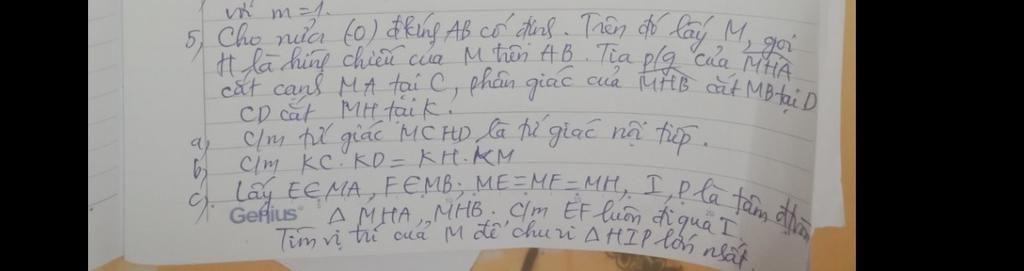 với m=1.
5) Cho nửa (O) đkính AB cố định. Trên đó lấy M, gọi
H là hình chiếu của M trên AB. Tia p/g của MHA
cắt cạnh MA tại C, phân giác của MHB cắt MB tại D
CD cắt MH tại K.
a) C/m tứ giác MCHD là tứ giác nội tiếp.
b) C/m KC.KD = KH.KM
c). Lấy E∈MA, F∈MB; ME=MF=MH, I, P là tâm
Genius
Δ MHA, MHB. C/m EF luôn đi qua I.
Tìm vị trí của M để chu vi ΔHIP lớn nhất.